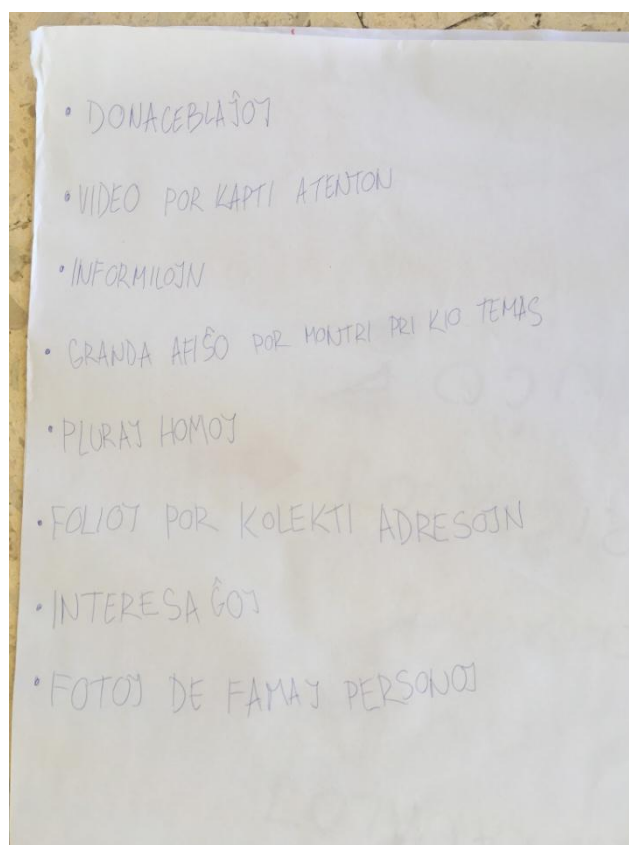 • DONACEBLAĴOJ
• VIDEO POR KAPTI ATENTON
• INFORMILOJN
• GRANDA AFIŜO POR MONTRI PRI KIO TEMAS
• PLURAJ HOMOJ
• FOLIOJ POR KOLEKTI ADRESOJN
• INTERESAĜOJ
• FOTOJ DE FAMAJ PERSONOJ